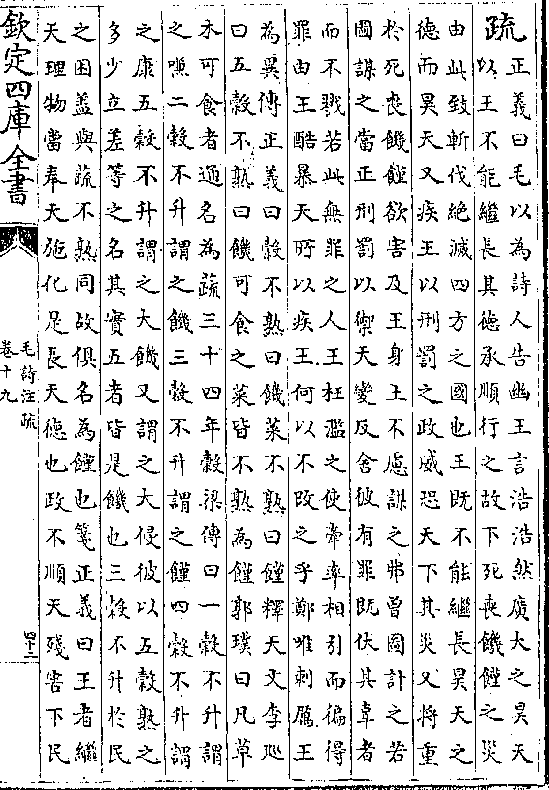 疏正義曰毛以為詩人告幽王言浩浩然廣大之昊天
以王不能繼長其德承順行之故下死喪饑饉之災
由此致斬伐絶滅四方之國也王既不能繼長昊天之
德而昊天又疾王以刑罰之政威恐天下其災又將重
於死喪饑饉欲害及王身王不慮謀之弗曾圖計之若
圖謀之當正刑罰以禦天變反舍彼有罪既伏其辜者
而不戮若此無罪之人王枉濫之使牽率相引而徧得
罪由王酷暴天所以疾王何以不改之乎鄭唯刺厲王
為異傳正義曰穀不熟曰饑菜不熟曰饉釋天文李廵
曰五穀不熟曰饑可食之菜皆不熟為饉郭璞曰凡草
木可食者通名為蔬三十四年穀梁傳曰一穀不升謂
之嗛二穀不升謂之饑三穀不升謂之饉四穀不升謂
之康五穀不升謂之大饑又謂之大侵彼以五穀熟之
多少立差等之名其實五者皆是饑也三穀不升於民
之困蓋與蔬不熟同故俱名為饉也箋正義曰王者繼
天理物當奉天施化是長天德也政不順天殘害下民
欽定四庫全書
毛詩注疏
卷十九
四十二